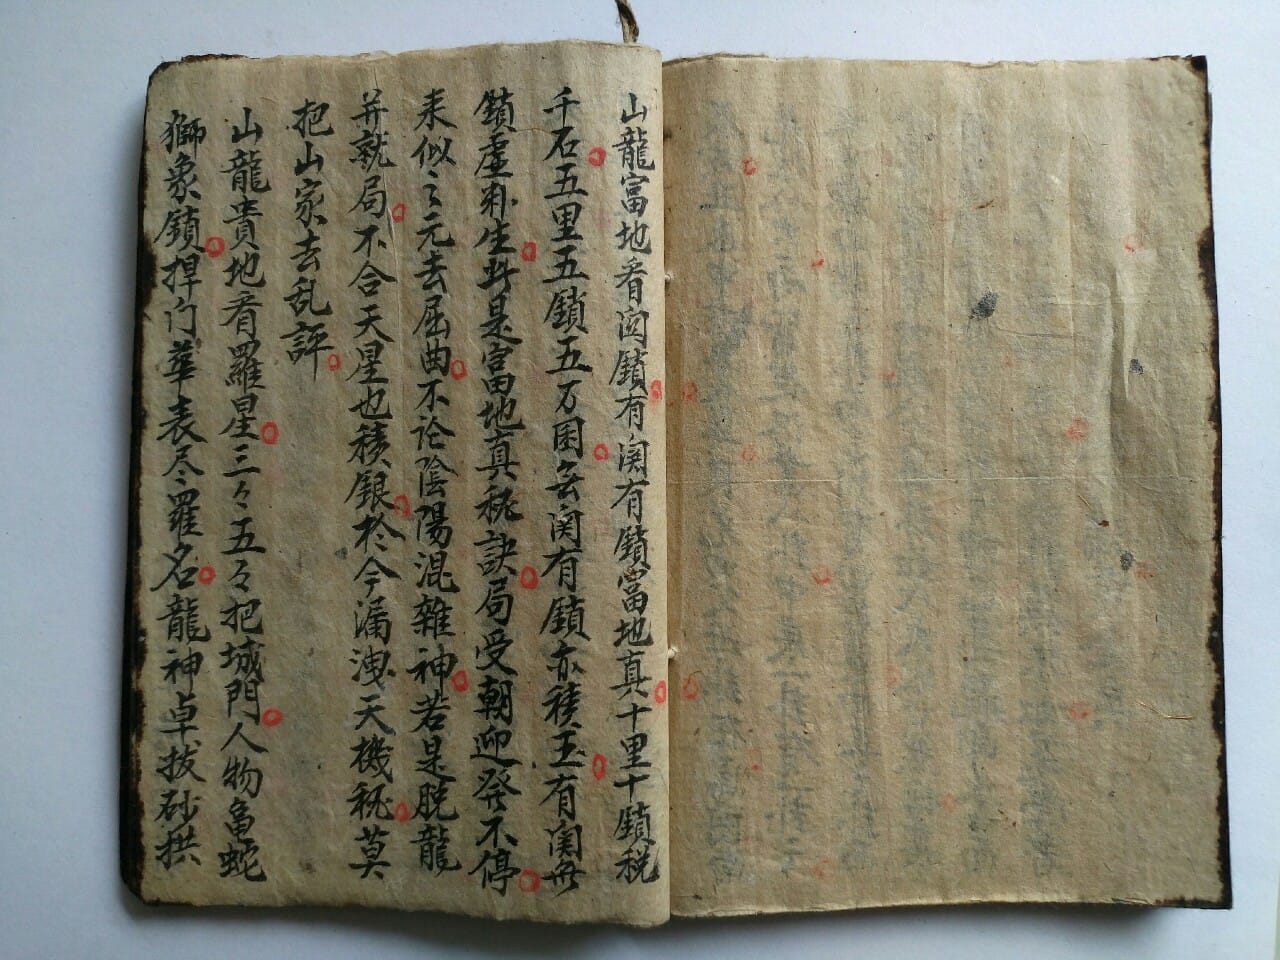 山龍富地看関鎖有関有鎖富地真十里十鎖税
千石五里五鎖五万囷無関有鎖亦積玉有関無
鎖虚粉生此是富地真秘訣局受朝迎発不停
来似之元去屈曲不论陰陽混雜神若是脱龍
并就局不合天星也積銀於今漏洩天機秘莫
把山家去乱評
山龍貴地看羅星三々五々把城門人物龜蛇
獅象鎖捍门華表尽羅名龍神卓拔砂拱